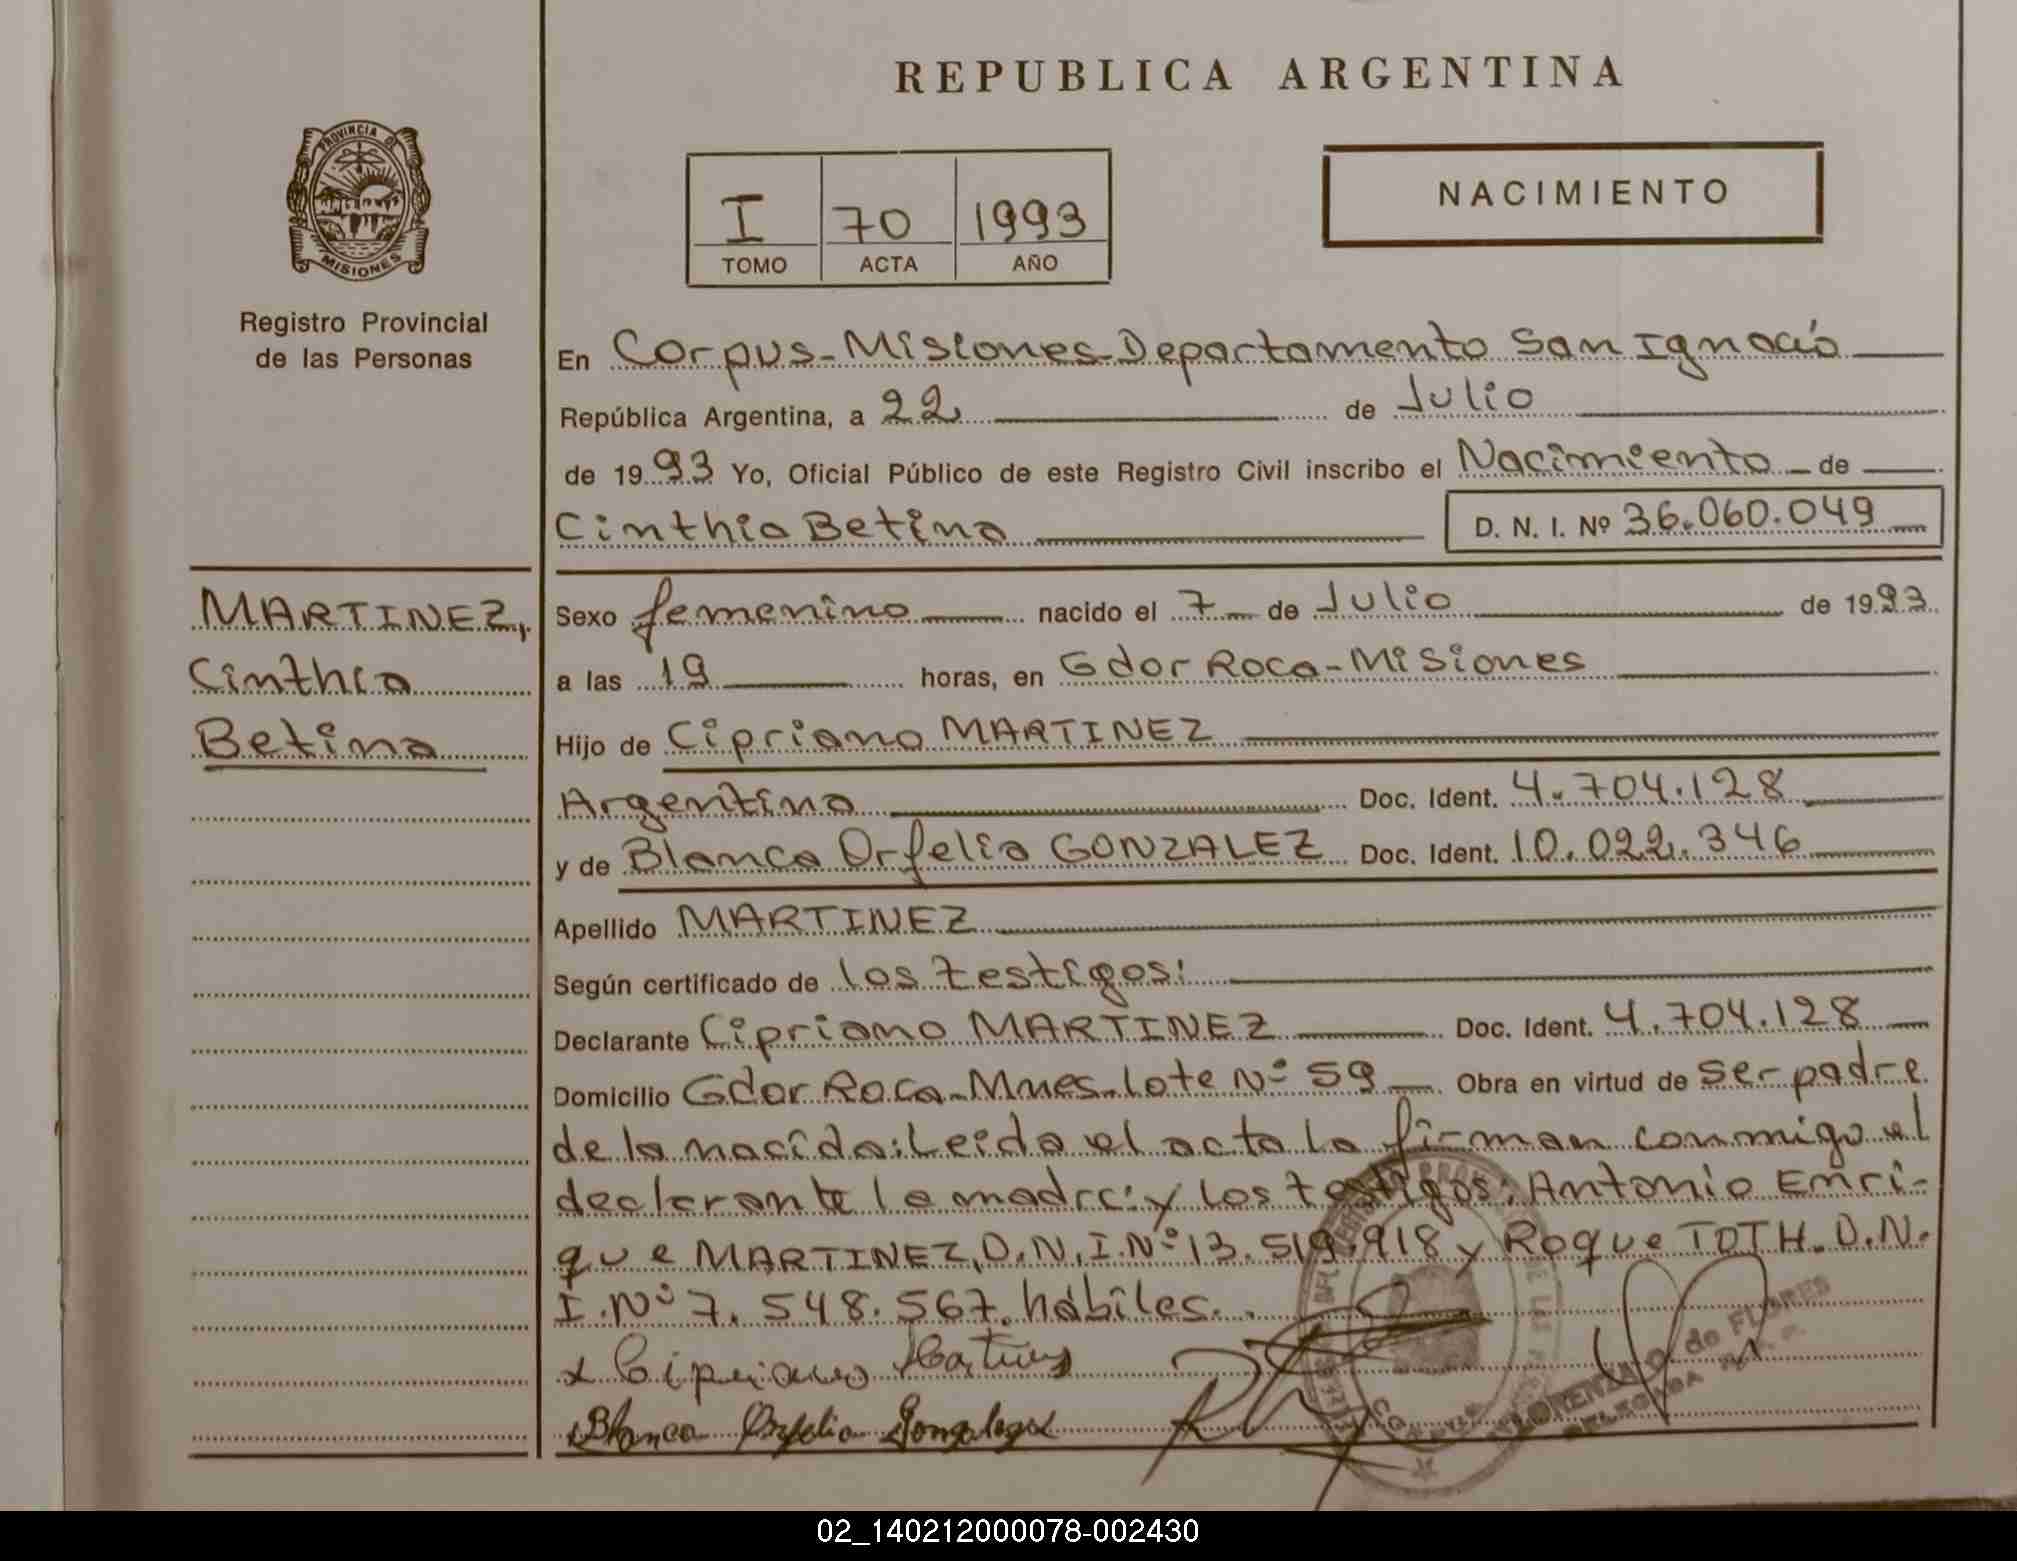 REPUBLICA ARGENTINA
PROVINCIA DE
MISIONES
Registro Provincial
de las Personas
I 70 1993
TOMO ACTA AÑO
NACIMIENTO
En Corpus-Misiones-Departamento San Ignacio
República Argentina, a 22 de Julio
de 1993 Yo, Oficial Público de este Registro Civil inscribo el Nacimiento de
Cinthia Betina D. N. I. Nº 36.060.049
MARTINEZ,
Cinthia
Betina
Sexo femenino nacido el 7 de Julio de 1993
a las 19 horas, en Gdor Roca-Misiones
Hijo de Cipriano MARTINEZ
Argentina Doc. Ident. 4.704.128
y de Blanca Orfelia GONZALEZ Doc. Ident. 10.022.346
Apellido MARTINEZ
Según certificado de los testigos:
Declarante Cipriano MARTINEZ Doc. Ident. 4.704.128
Domicilio Gdor Roca-Mnes-lote Nº 59 Obra en virtud de ser padre
de la nacida: Leida el acta la firman conmigo el
declarante la madre: y los testigos: Antonio Enri-
que MARTINEZ, D.N.I. Nº 13.519.918 y Roque TOTH. D.N.
I. Nº 7.548.567. hábiles.
x Cipriano Martinez
x Blanca Orfelia Gonzalez
de FLORES
DELEGADA
02_140212000078-002430